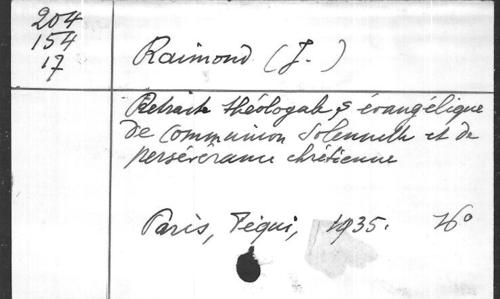 204
154
17
Raimond (J.)
Retraite théologale & évangélique
de Communion Solennelle et de
persévérance chrétienne
Paris, Téqui, 1935. 16°